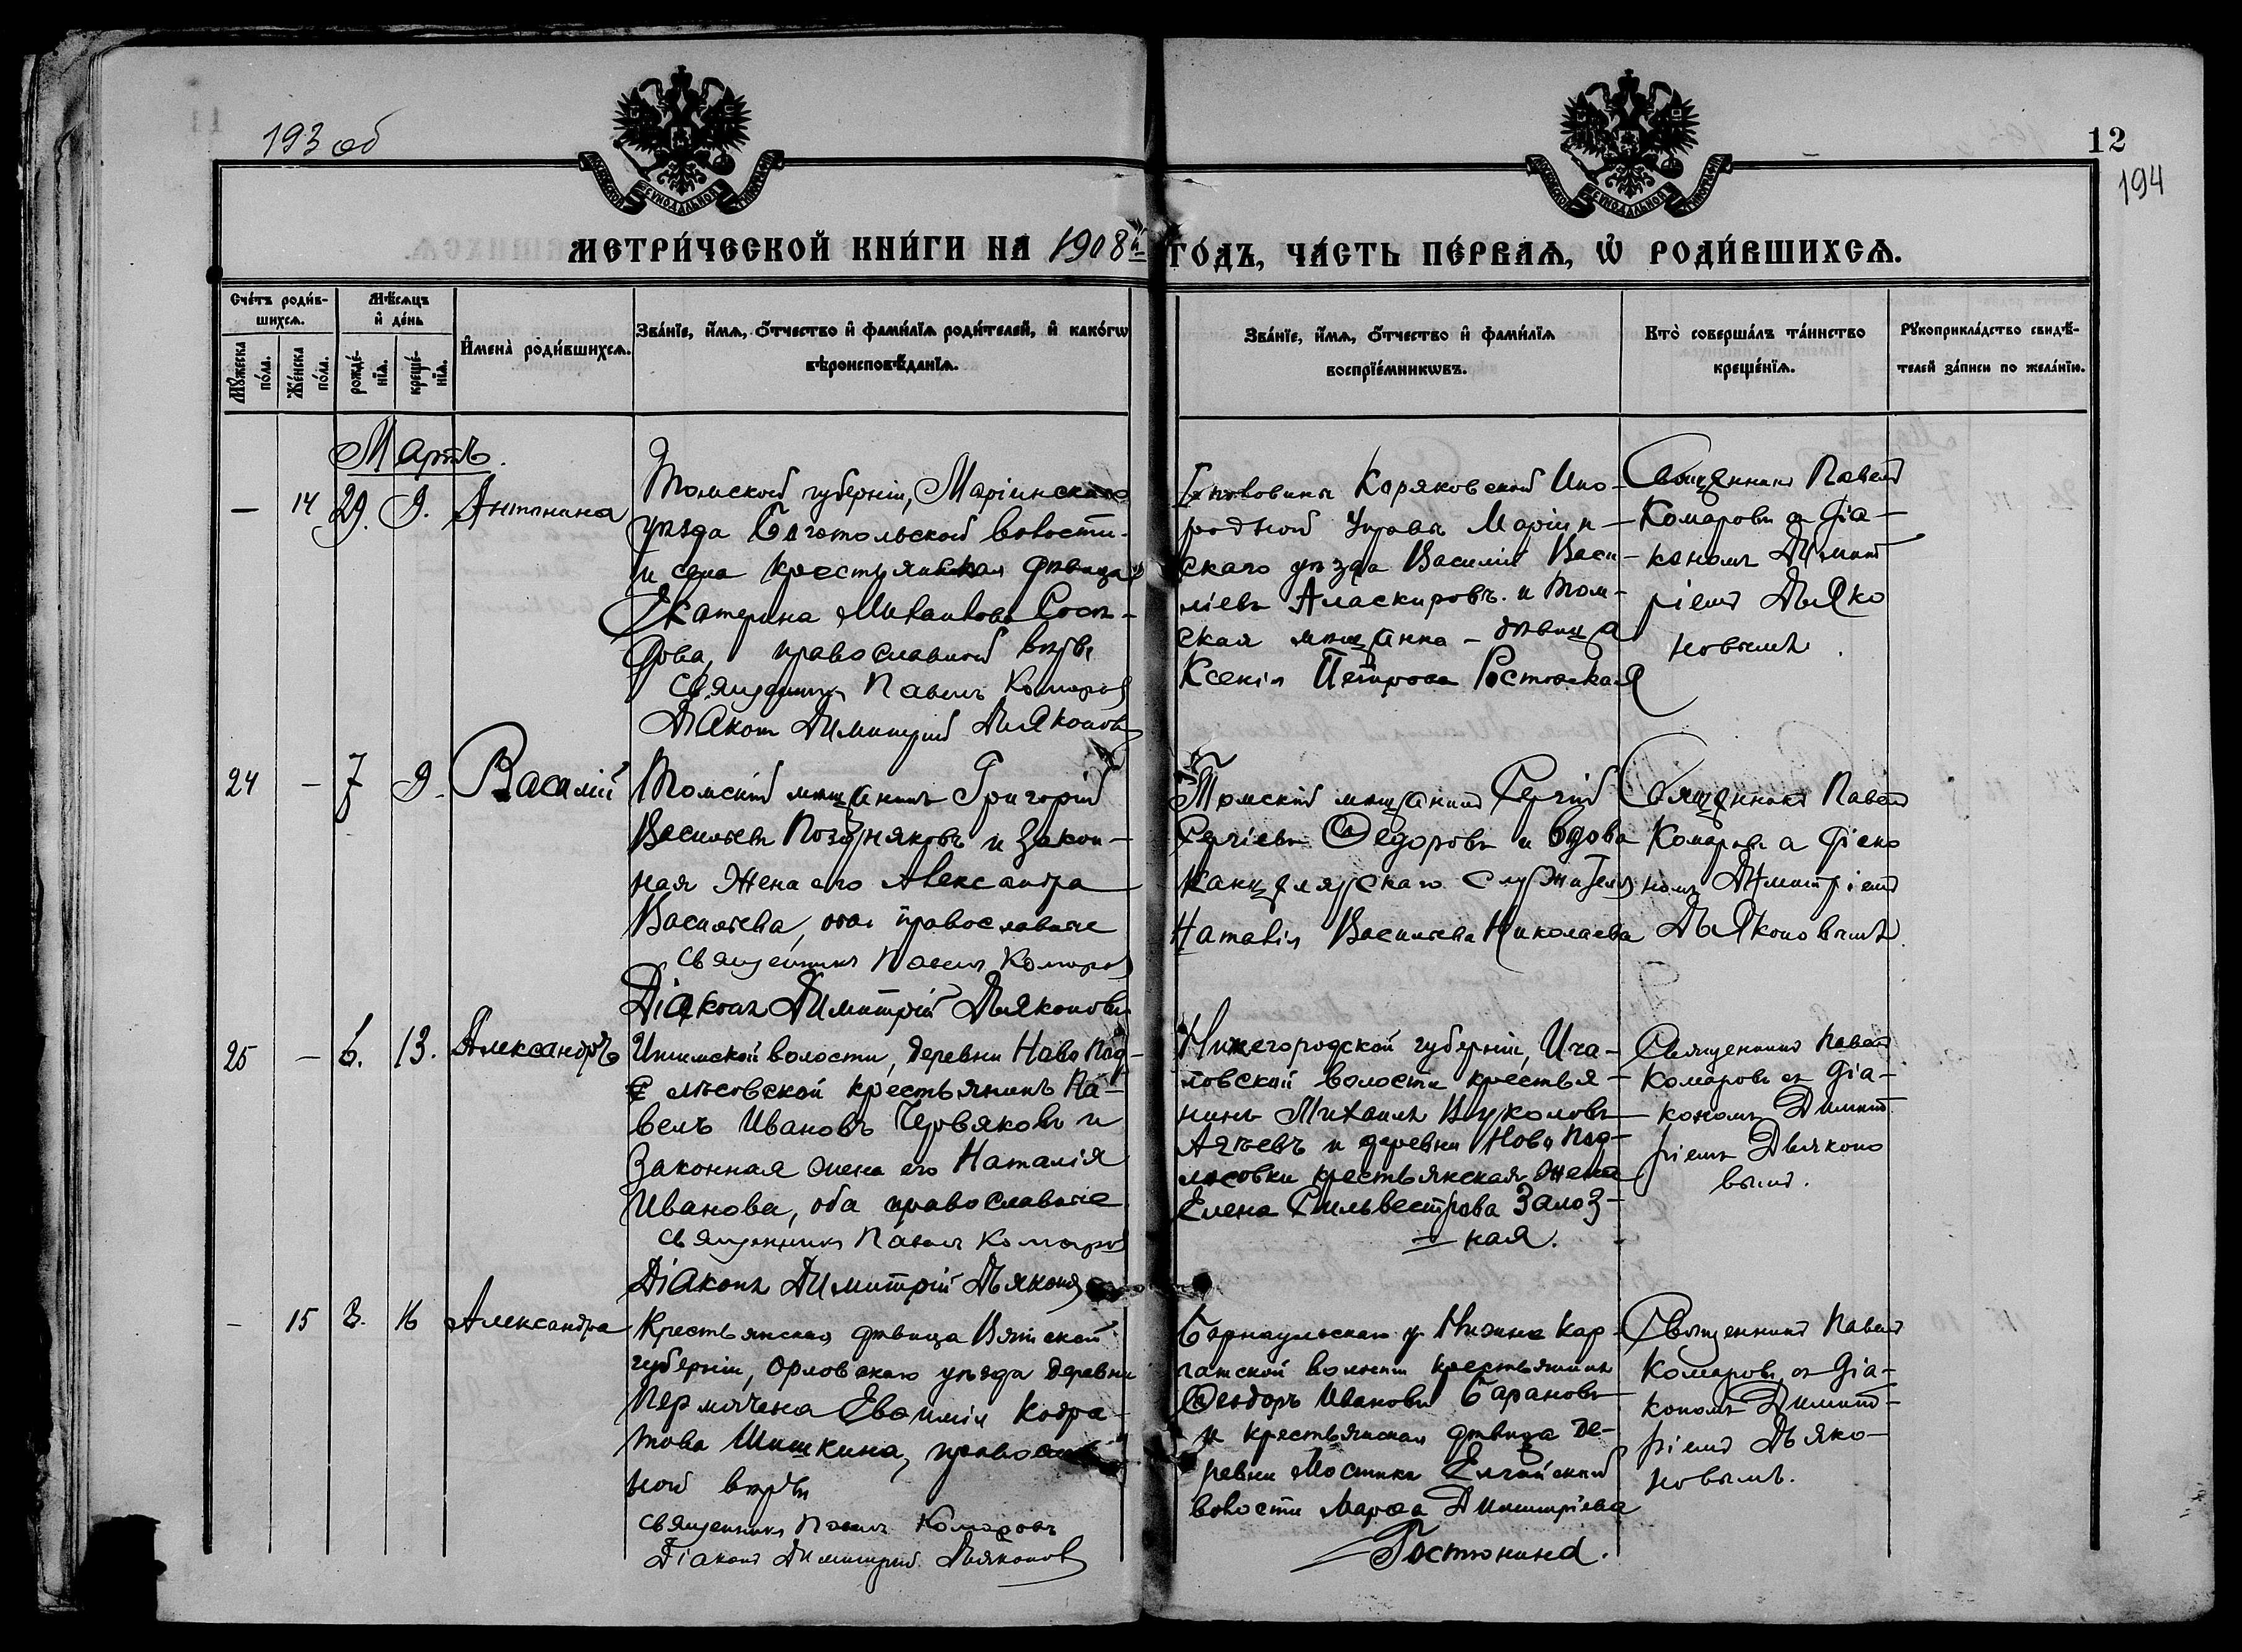 193 об
12
194
МЕТРИ́ЧЕСКОЙ КНИ́ГИ НА 1908й ГО́ДЪ, ЧА́СТЬ ПЕ́РВАѦ, Ѡ҆ РОДИ́ВШИХСѦ.
Сче́тъ роди́в-
шихсѧ.
Мѣ́сѧцъ
и҆ де́нь
Мꙋ́жеска
по́ла.
Же́нска
по́ла.
рожде́-
нїѧ.
креще́-
нїѧ.
И҆мена̀ роди́вшихсѧ.
Зва́нїе, и҆́мѧ, ѻ҆́тчество и҆ фами́лїѧ роди́телей, и҆ како́гѡ
вѣроисповѣ́данїѧ.
Зва́нїе, и҆́мѧ, ѻ҆́тчество и҆ фами́лїѧ
воспрїе́мникѡвъ.
Кто̀ соверша́лъ та́инство
креще́нїѧ.
Рꙋкоприкла́дство свидѣ́-
телей за́писи по жела́нїю.
Мартъ.
— 14 29. 9. Антонина
Томской губерніи, Маріинскаго
уѣзда Боготольской волости
и села крестьянская дѣвица
Екатерина Михаилова Сосѣ-
дова, православной вѣры
Священникъ Павелъ Комаровъ
Діаконъ Димитрій Дьяконовъ
Коряковской Ино-
родной Управы Маріин-
скаго уѣзда Василій Васи-
ліевъ Аласкировъ и Том-
ская мѣщанка – дѣвица
Ксенія Петрова Ростовская
Священникъ Павелъ
Комаровъ съ діа-
кономъ Димит
ріемъ Дьяко
новымъ.
24 — 7 9. Василій
Томскій мѣщанинъ Григорій
Васильевъ Поздняковъ и закон-
ная жена его Александра
Васильева, оба православные
Священникъ Павелъ Комаровъ
Діаконъ Димитрій Дьяконовъ
Томскій мѣщанинъ Сергій
Сергіевъ Ѳедоровъ и вдова
канцелярскаго служителя
Наталія Васильева Николаева
Священникъ Павелъ
Комаровъ съ діако
номъ Димитріемъ
Дьяконовымъ.
25 — 6. 13. Александръ
Ишимской волости, деревни Ново Под-
лѣсовской крестьянинъ Па-
велъ Ивановъ Червяковъ и
законная жена его Наталія
Иванова, оба православные
Священникъ Павелъ Комаровъ
Діаконъ Димитрій Дьяконовъ
Нижегородской губерніи, Ича-
ловской волости крестья-
нинъ Михаилъ Вуколовъ
Агѣевъ и деревни Ново Под-
лѣсовки крестьянская жена
Елена Сильвестрова Залоз-
ная.
Священникъ Павелъ
Комаровъ съ діа-
кономъ Димит
ріемъ Дьяконо
вымъ.
— 15 3. 16 Александра
Крестьянская дѣвица Вятской
губерніи, Орловскаго уѣзда деревни
Евѳимія Кодра-
това Шишкина, православ-
ной вѣры
Священникъ Павелъ Комаровъ
Діаконъ Димитрій Дьяконовъ
Барнаульскаго у. Нижне Кар-
гатской волости крестьянинъ
Ѳеодоръ Ивановъ Барановъ
и крестьянская дѣвица де-
ревни Мостики Елгайской
волости Марѳа Димитріева
Гостюнина.
Священникъ Павелъ
Комаровъ съ діа-
кономъ Димит-
ріемъ Дьяко-
новымъ.